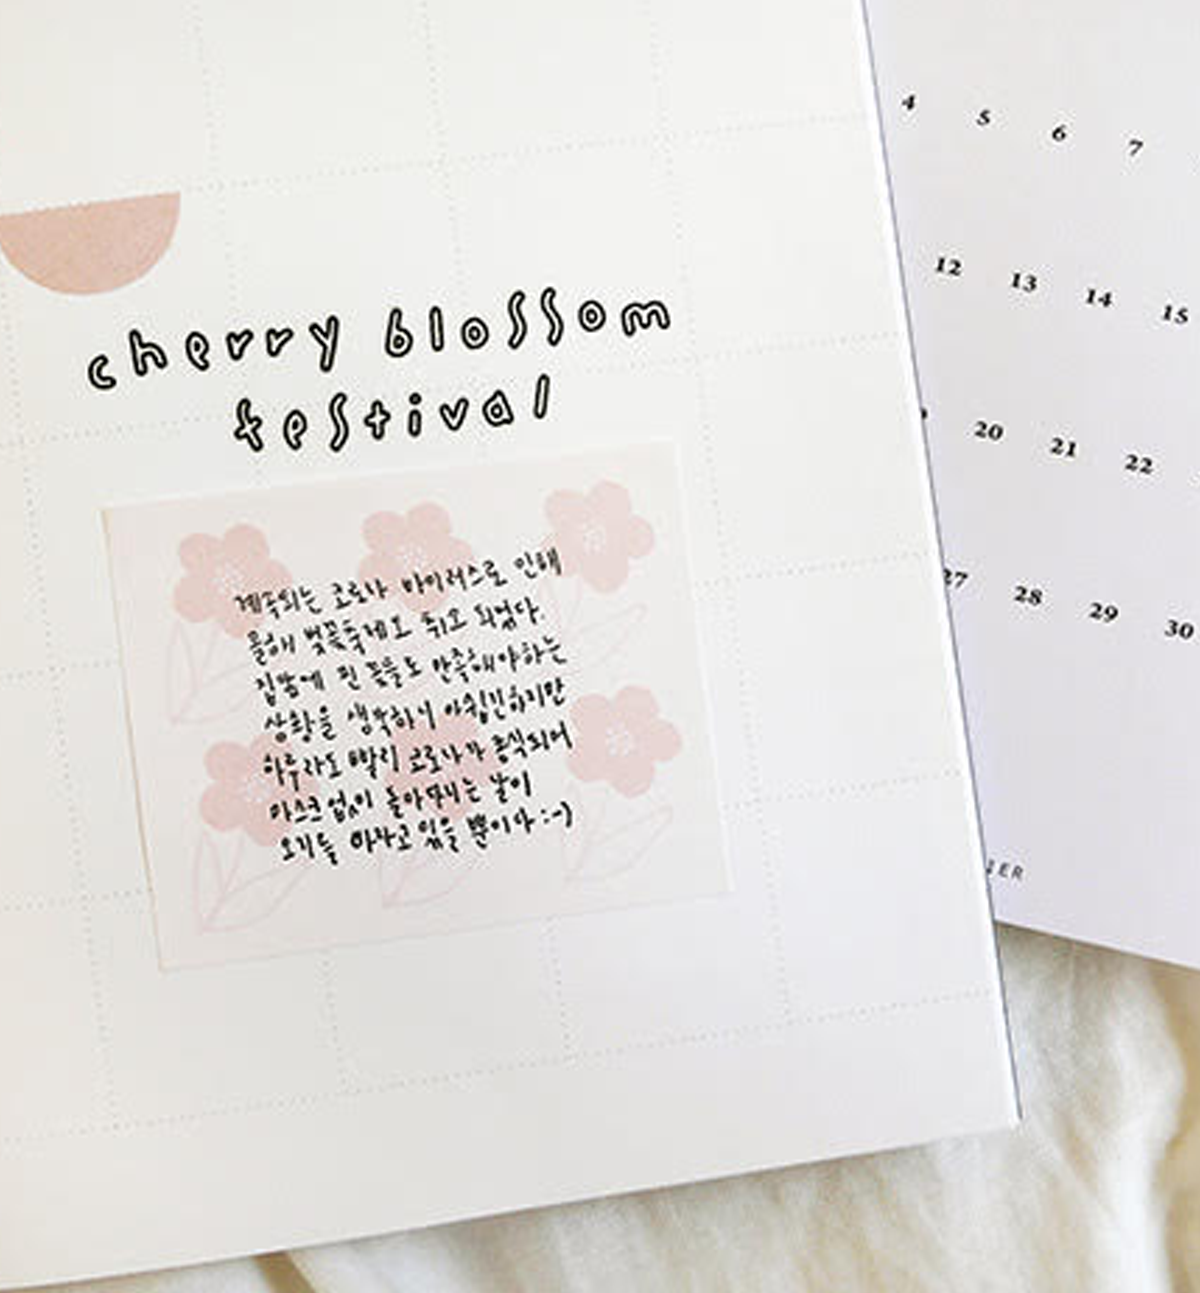 cherry blossom
festival
계속되는 코로나 바이러스로 인해
올해 벚꽃축제도 취소 되었다.
집앞에 핀 꽃들로 만족해야하는
상황을 생각하니 아쉽긴하지만
하루라도 빨리 코로나가 종식되어
마스크 없이 돌아다니는 날이
오기를 바라고 있을 뿐이다 :-)
4 5 6 7
12 13 14 15
20 21 22
27 28 29 30